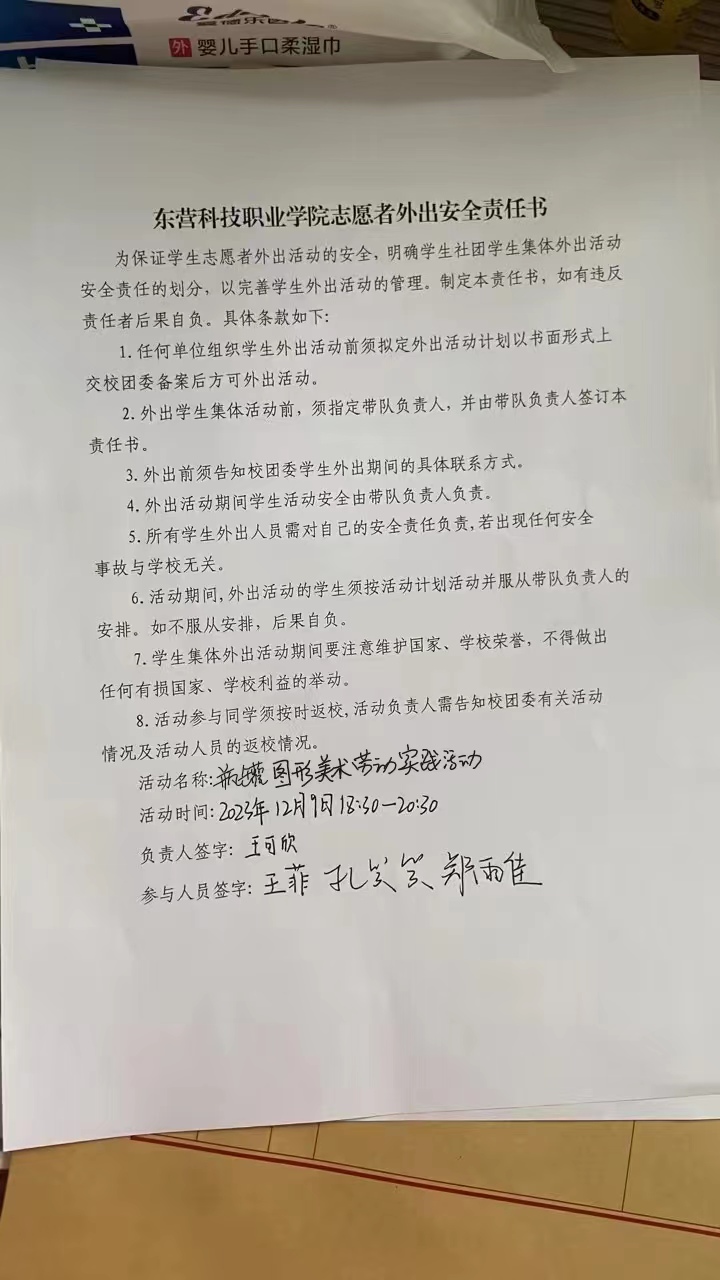 婴儿手口柔湿巾
东营科技职业学院志愿者外出安全责任书
为保证学生志愿者外出活动的安全，明确学生社团学生集体外出活动
安全责任的划分，以完善学生外出活动的管理。制定本责任书，如有违反
责任者后果自负。具体条款如下：
1.任何单位组织学生外出活动前须拟定外出活动计划以书面形式上
交校团委备案后方可外出活动。
2.外出学生集体活动前，须指定带队负责人，并由带队负责人签订本
责任书。
3.外出前须告知校团委学生外出期间的具体联系方式。
4.外出活动期间学生活动安全由带队负责人负责。
5.所有学生外出人员需对自己的安全责任负责,若出现任何安全
事故与学校无关。
6.活动期间,外出活动的学生须按活动计划活动并服从带队负责人的
安排。如不服从安排，后果自负。
7.学生集体外出活动期间要注意维护国家、学校荣誉，不得做出
任何有损国家、学校利益的举动。
8.活动参与同学须按时返校,活动负责人需告知校团委有关活动
情况及活动人员的返校情况。
活动名称:瓶罐图形美术劳动实践活动
活动时间:2023年12月9日18:30—20:30
负责人签字：王可欣
参与人员签字：王菲 孔笑笑 郑雨佳